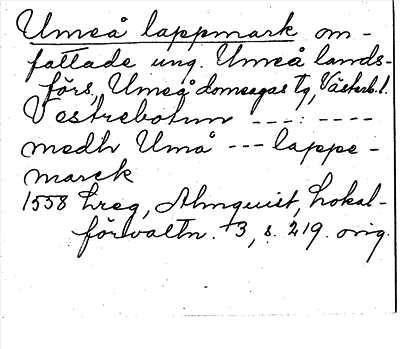 Umeå lappmark om-
fattade ung. Umeå lands-
förs, Umeå domsagas tg, Västerb. l.
Vestrebotnn ---:----
medh Umå --- lappe-
marck
1558 Lreg, Almquist, Lokal-
förvaltn. 3, s. 219. orig.